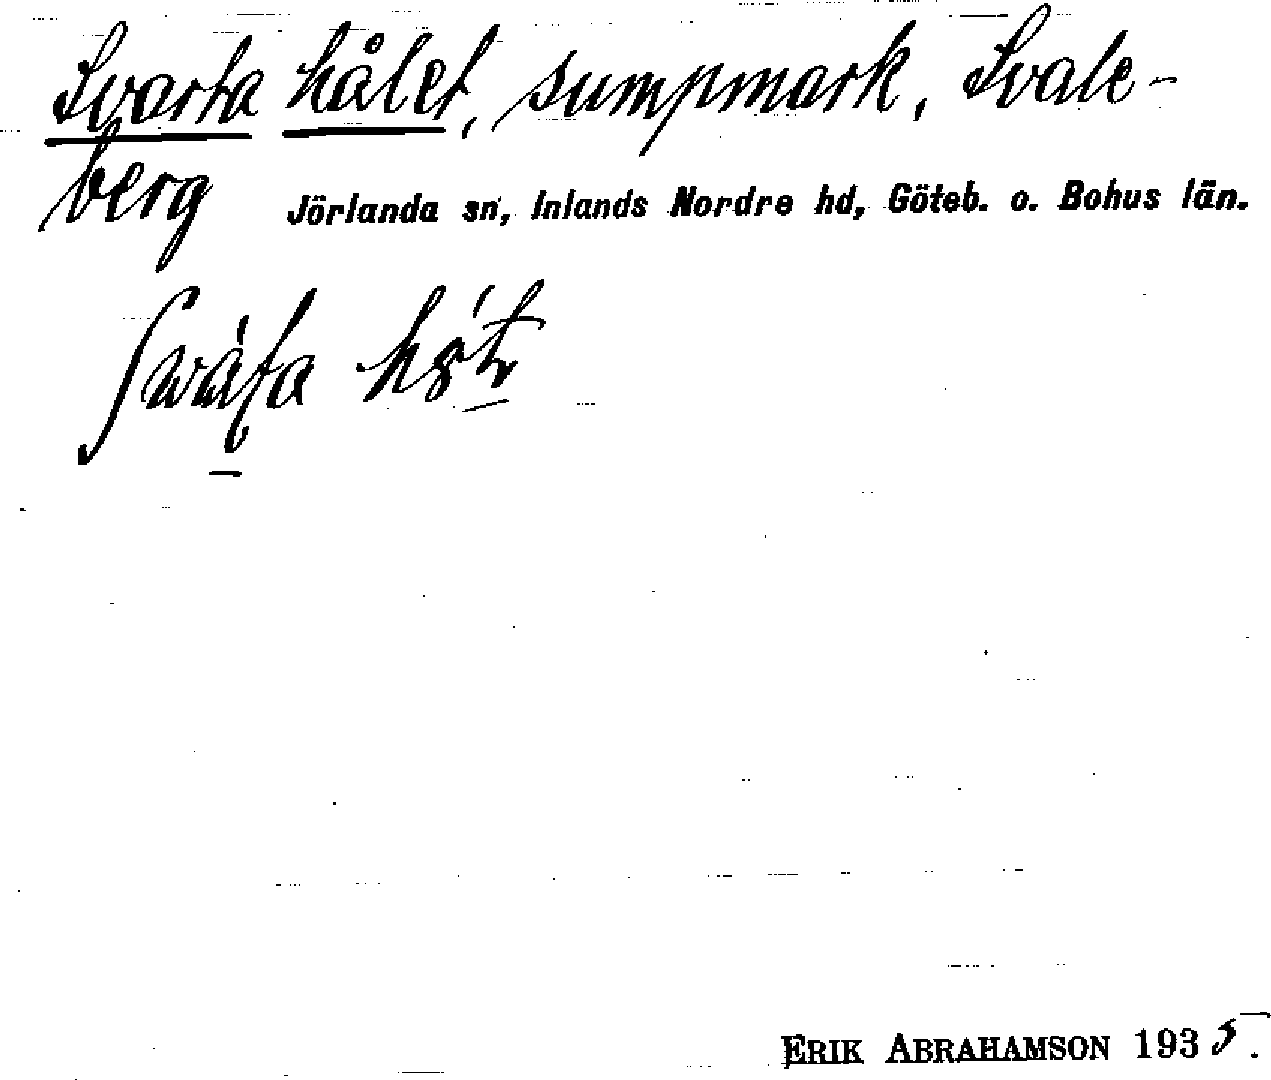 Svarta hålet, sumpmark, Svale-
berg
Jörlanda sn, Inlands Nordre hd, Göteb. o. Bohus län.
ERIK ABRAHAMSON 1935.